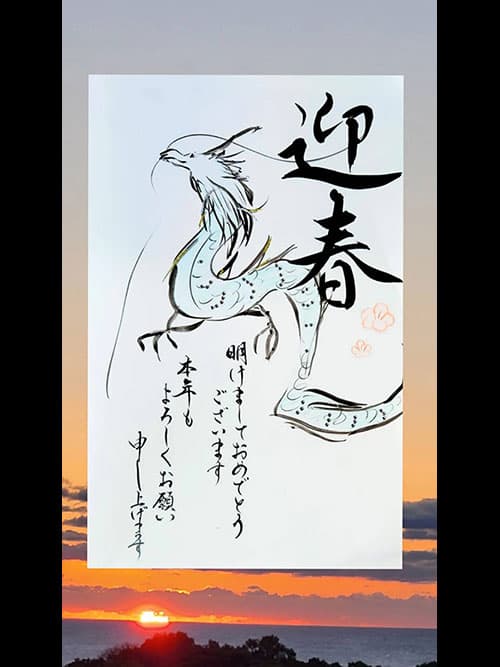 迎春
明けましておめでとう
ございます
本年も
よろしくお願い
申し上げます